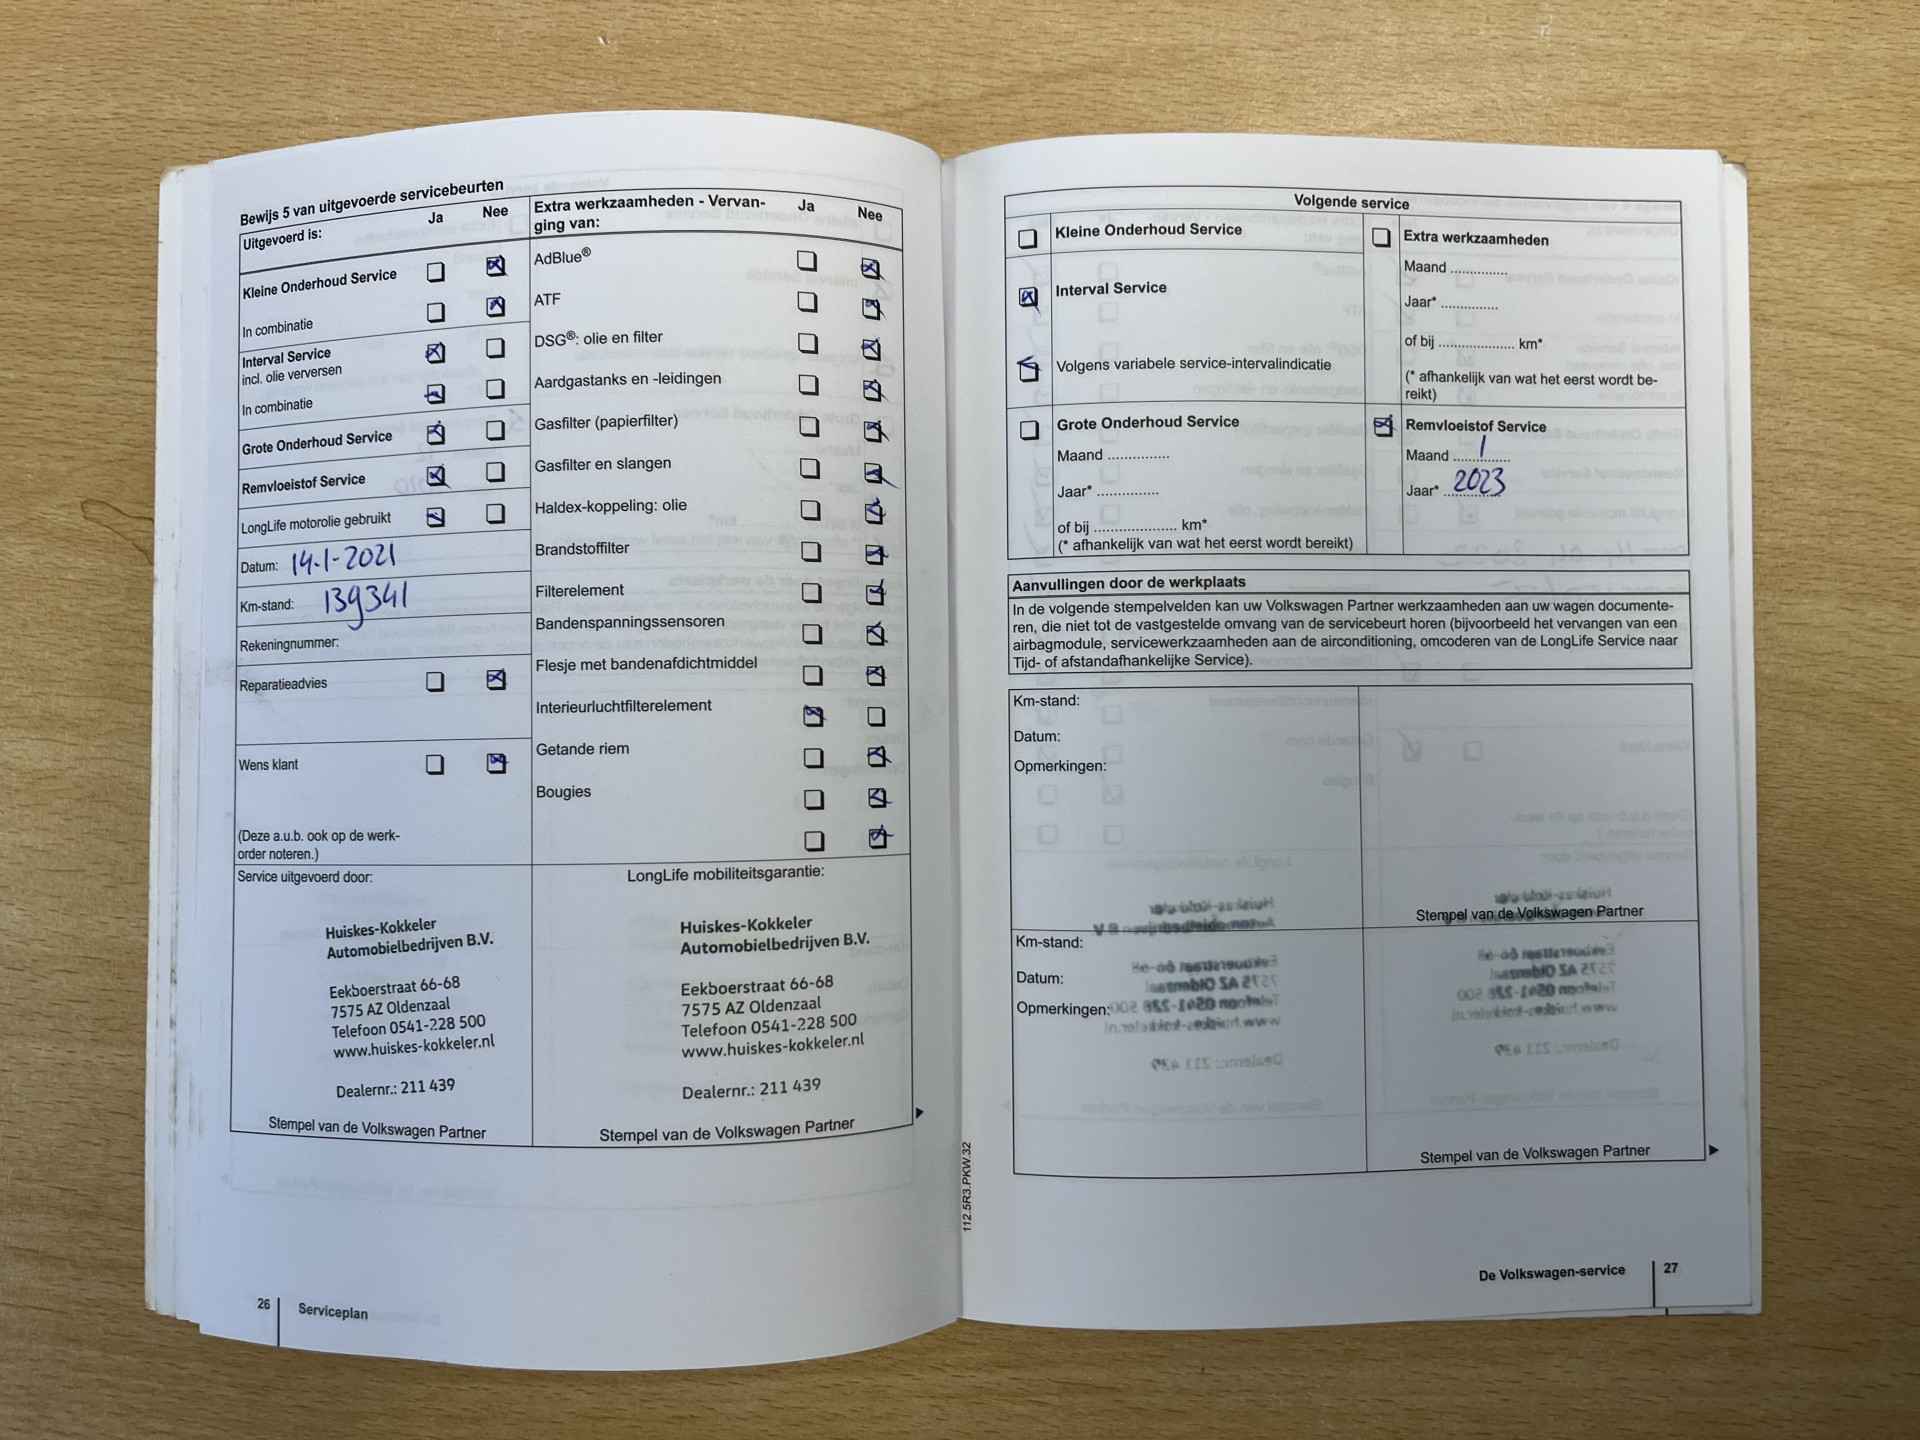 Bewijs 5 van uitgevoerde servicebeurten
Uitgevoerd is: Ja Nee
Kleine Onderhoud Service
In combinatie
Interval Service
incl. olie verversen
In combinatie
Grote Onderhoud Service
Remvloeistof Service
LongLife motorolie gebruikt
Datum: 14-1-2021
Km-stand: 139341
Rekeningnummer:
Reparatieadvies
Wens klant
(Deze a.u.b. ook op de werk-
order noteren.)
Extra werkzaamheden - Vervan- Ja Nee
ging van:
AdBlue®
ATF
DSG®: olie en filter
Aardgastanks en -leidingen
Gasfilter (papierfilter)
Gasfilter en slangen
Haldex-koppeling: olie
Brandstoffilter
Filterelement
Bandenspanningssensoren
Flesje met bandenafdichtmiddel
Interieurluchtfilterelement
Getande riem
Bougies
Service uitgevoerd door:
Huiskes-Kokkeler
Automobielbedrijven B.V.
Eekboerstraat 66-68
7575 AZ Oldenzaal
Telefoon 0541-228 500
www.huiskes-kokkeler.nl
Dealernr.: 211 439
Stempel van de Volkswagen Partner
LongLife mobiliteitsgarantie:
Huiskes-Kokkeler
Automobielbedrijven B.V.
Eekboerstraat 66-68
7575 AZ Oldenzaal
Telefoon 0541-228 500
www.huiskes-kokkeler.nl
Dealernr.: 211 439
Stempel van de Volkswagen Partner
26 Serviceplan
112.5R3.PKW.32
Volgende service
Kleine Onderhoud Service
Interval Service
Volgens variabele service-intervalindicatie
Grote Onderhoud Service
Maand ...............
Jaar* ...............
of bij .................... km*
(* afhankelijk van wat het eerst wordt bereikt)
Extra werkzaamheden
Maand ..............
Jaar* ..............
of bij ................... km*
(* afhankelijk van wat het eerst wordt be-
reikt)
Remvloeistof Service
Maand 1
Jaar* 2023
Aanvullingen door de werkplaats
In de volgende stempelvelden kan uw Volkswagen Partner werkzaamheden aan uw wagen documente-
ren, die niet tot de vastgestelde omvang van de servicebeurt horen (bijvoorbeeld het vervangen van een
airbagmodule, servicewerkzaamheden aan de airconditioning, omcoderen van de LongLife Service naar
Tijd- of afstandafhankelijke Service).
Km-stand:
Datum:
Opmerkingen:
Stempel van de Volkswagen Partner
Km-stand:
Datum:
Opmerkingen:
Stempel van de Volkswagen Partner
De Volkswagen-service 27